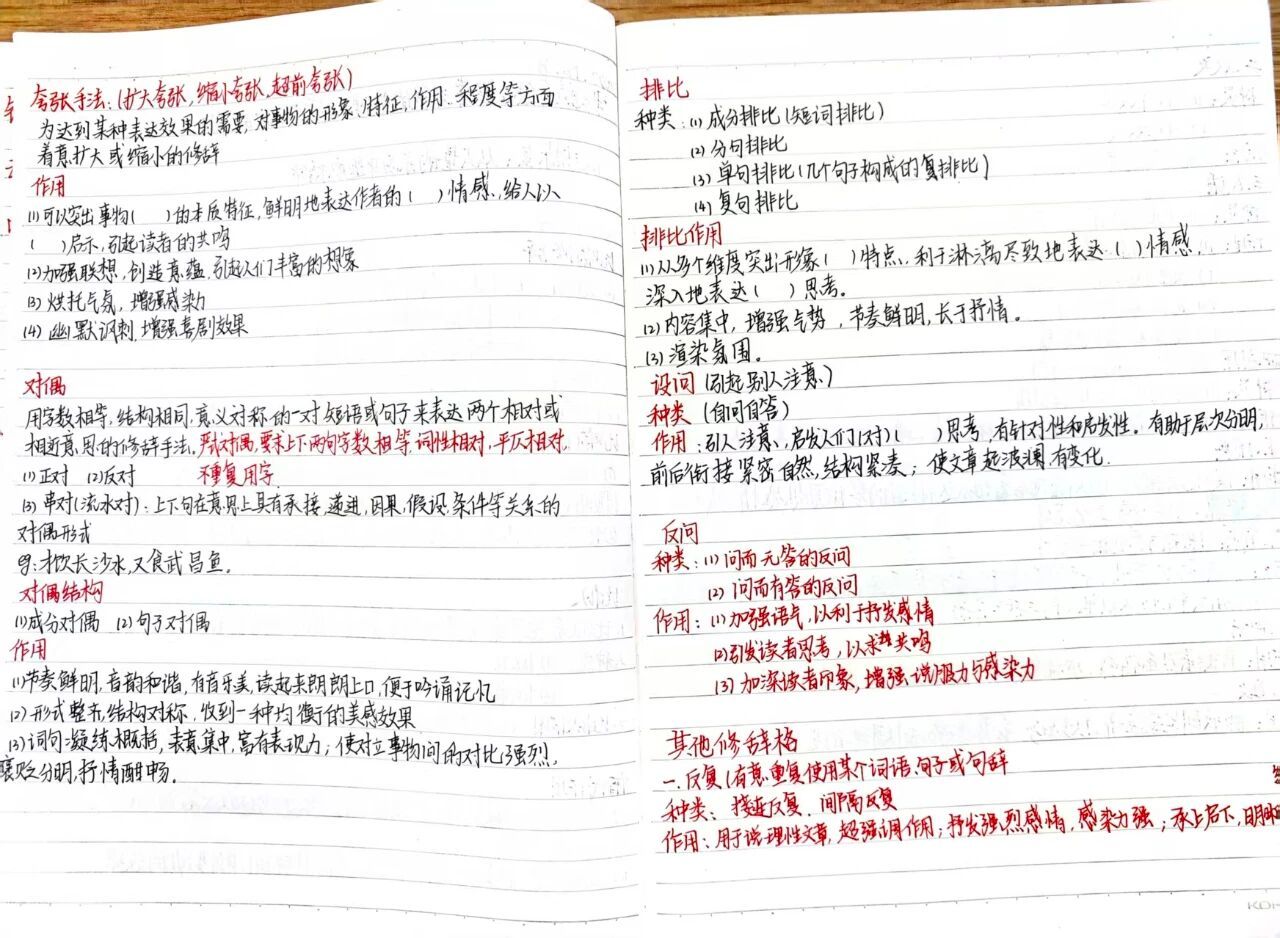 夸张手法:(扩大夸张,缩小夸张,超前夸张)
为达到某种表达效果的需要,对事物的形象、特征,作用、程度等方面
着意扩大或缩小的修辞
作用
(1)可以突出事物( )的本质特征,鲜明地表达作者的( )情感,给人以
( )启示,引起读者的共鸣
(2)加强联想,创造意蕴,引起人们丰富的想象
(3)烘托气氛,增强感染力
(4)幽默讽刺,增强喜剧效果
对偶
用字数相等,结构相同,意义对称的一对短语或句子来表达两个相对或
相近意思的修辞手法。严式对偶,要求上下两句字数相等,词性相对,平仄相对,
(1)正对 (2)反对 不重复用字.
(3)串对(流水对):上下句在意思上具有承接、递进,因果,假设、条件等关系的
对偶形式
eg:才饮长沙水,又食武昌鱼。
对偶结构
(1)成分对偶 (2)句子对偶
作用
(1)节奏鲜明,音韵和谐,有音乐美,读起来朗朗上口,便于吟诵记忆
(2)形式整齐,结构对称,收到一种均衡的美感效果
(3)词句凝练概括,表意集中,富有表现力;使对立事物间的对比强烈,
褒贬分明,抒情酣畅.
排比
种类:(1)成分排比(短词排比)
(2)分句排比
(3)单句排比(几个句子构成的复排比)
(4)复句排比
排比作用
(1)从多个维度突出形象( )特点,利于淋漓尽致地表达( )情感,
深入地表达( )思考。
(2)内容集中,增强气势,节奏鲜明,长于抒情。
(3)渲染氛围。
设问(引起别人注意)
种类(自问自答)
作用:引人注意,启发人们(对)( )思考,有针对性和启发性。有助于层次分明,
前后衔接紧密自然,结构紧凑;使文章起波澜,有变化.
反问
种类:(1)问而无答的反问
(2)问而有答的反问
作用:(1)加强语气,以利于抒发感情
(2)引发读者思考,以求共鸣
(3)加深读者印象,增强说服力与感染力
其他修辞格
一.反复(有意重复使用某个词语、句子或句辞
种类:接连反复、间隔反复
作用:用于说理性文章,起强调作用;抒发强烈感情,感染力强;承上启下,